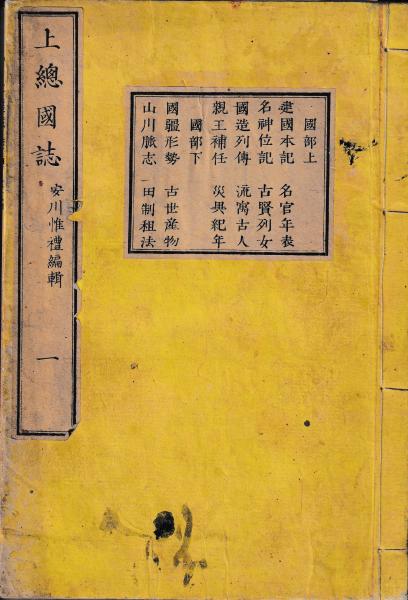 上總國誌 安川惟禮編輯 一
國部上
建國本記 名官年表
名神位記 古賢列女
國造列傳 流寓古人
親王補任 災異紀年
國部下
國疆形勢 古世産物
山川脈志 田制租法